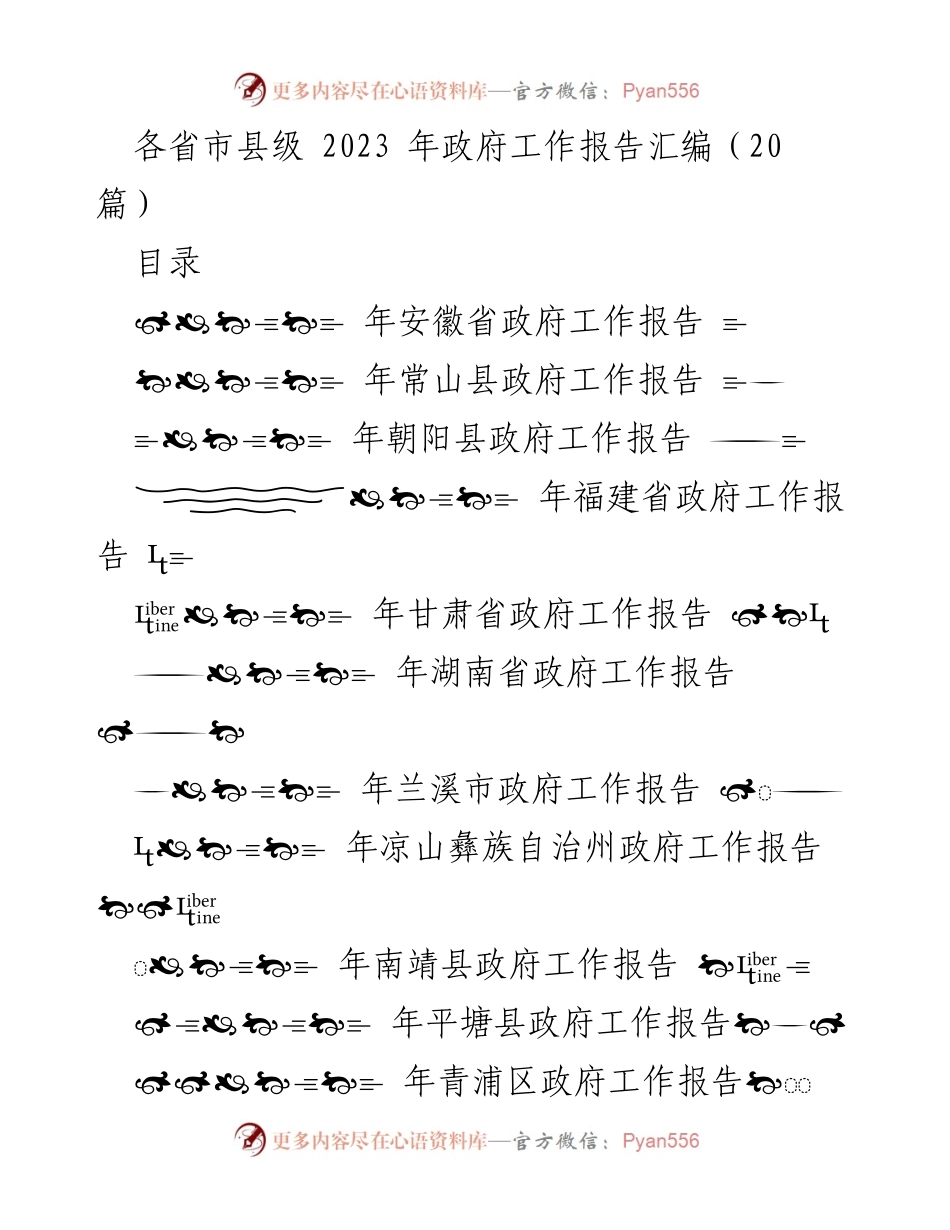 更多内容尽在心语资料库—官方微信：Pyan556
各省市县级 2023 年政府工作报告汇编（20
篇）
目录
年安徽省政府工作报告
年常山县政府工作报告
年朝阳县政府工作报告
年福建省政府工作报
告 Lt
Libertine 年甘肃省政府工作报告 Lt
年湖南省政府工作报告
年兰溪市政府工作报告
Lt 年凉山彝族自治州政府工作报告
Libertine
年南靖县政府工作报告 Libertine
年平塘县政府工作报告
年青浦区政府工作报告
更多内容尽在心语资料库—官方微信：Pyan556